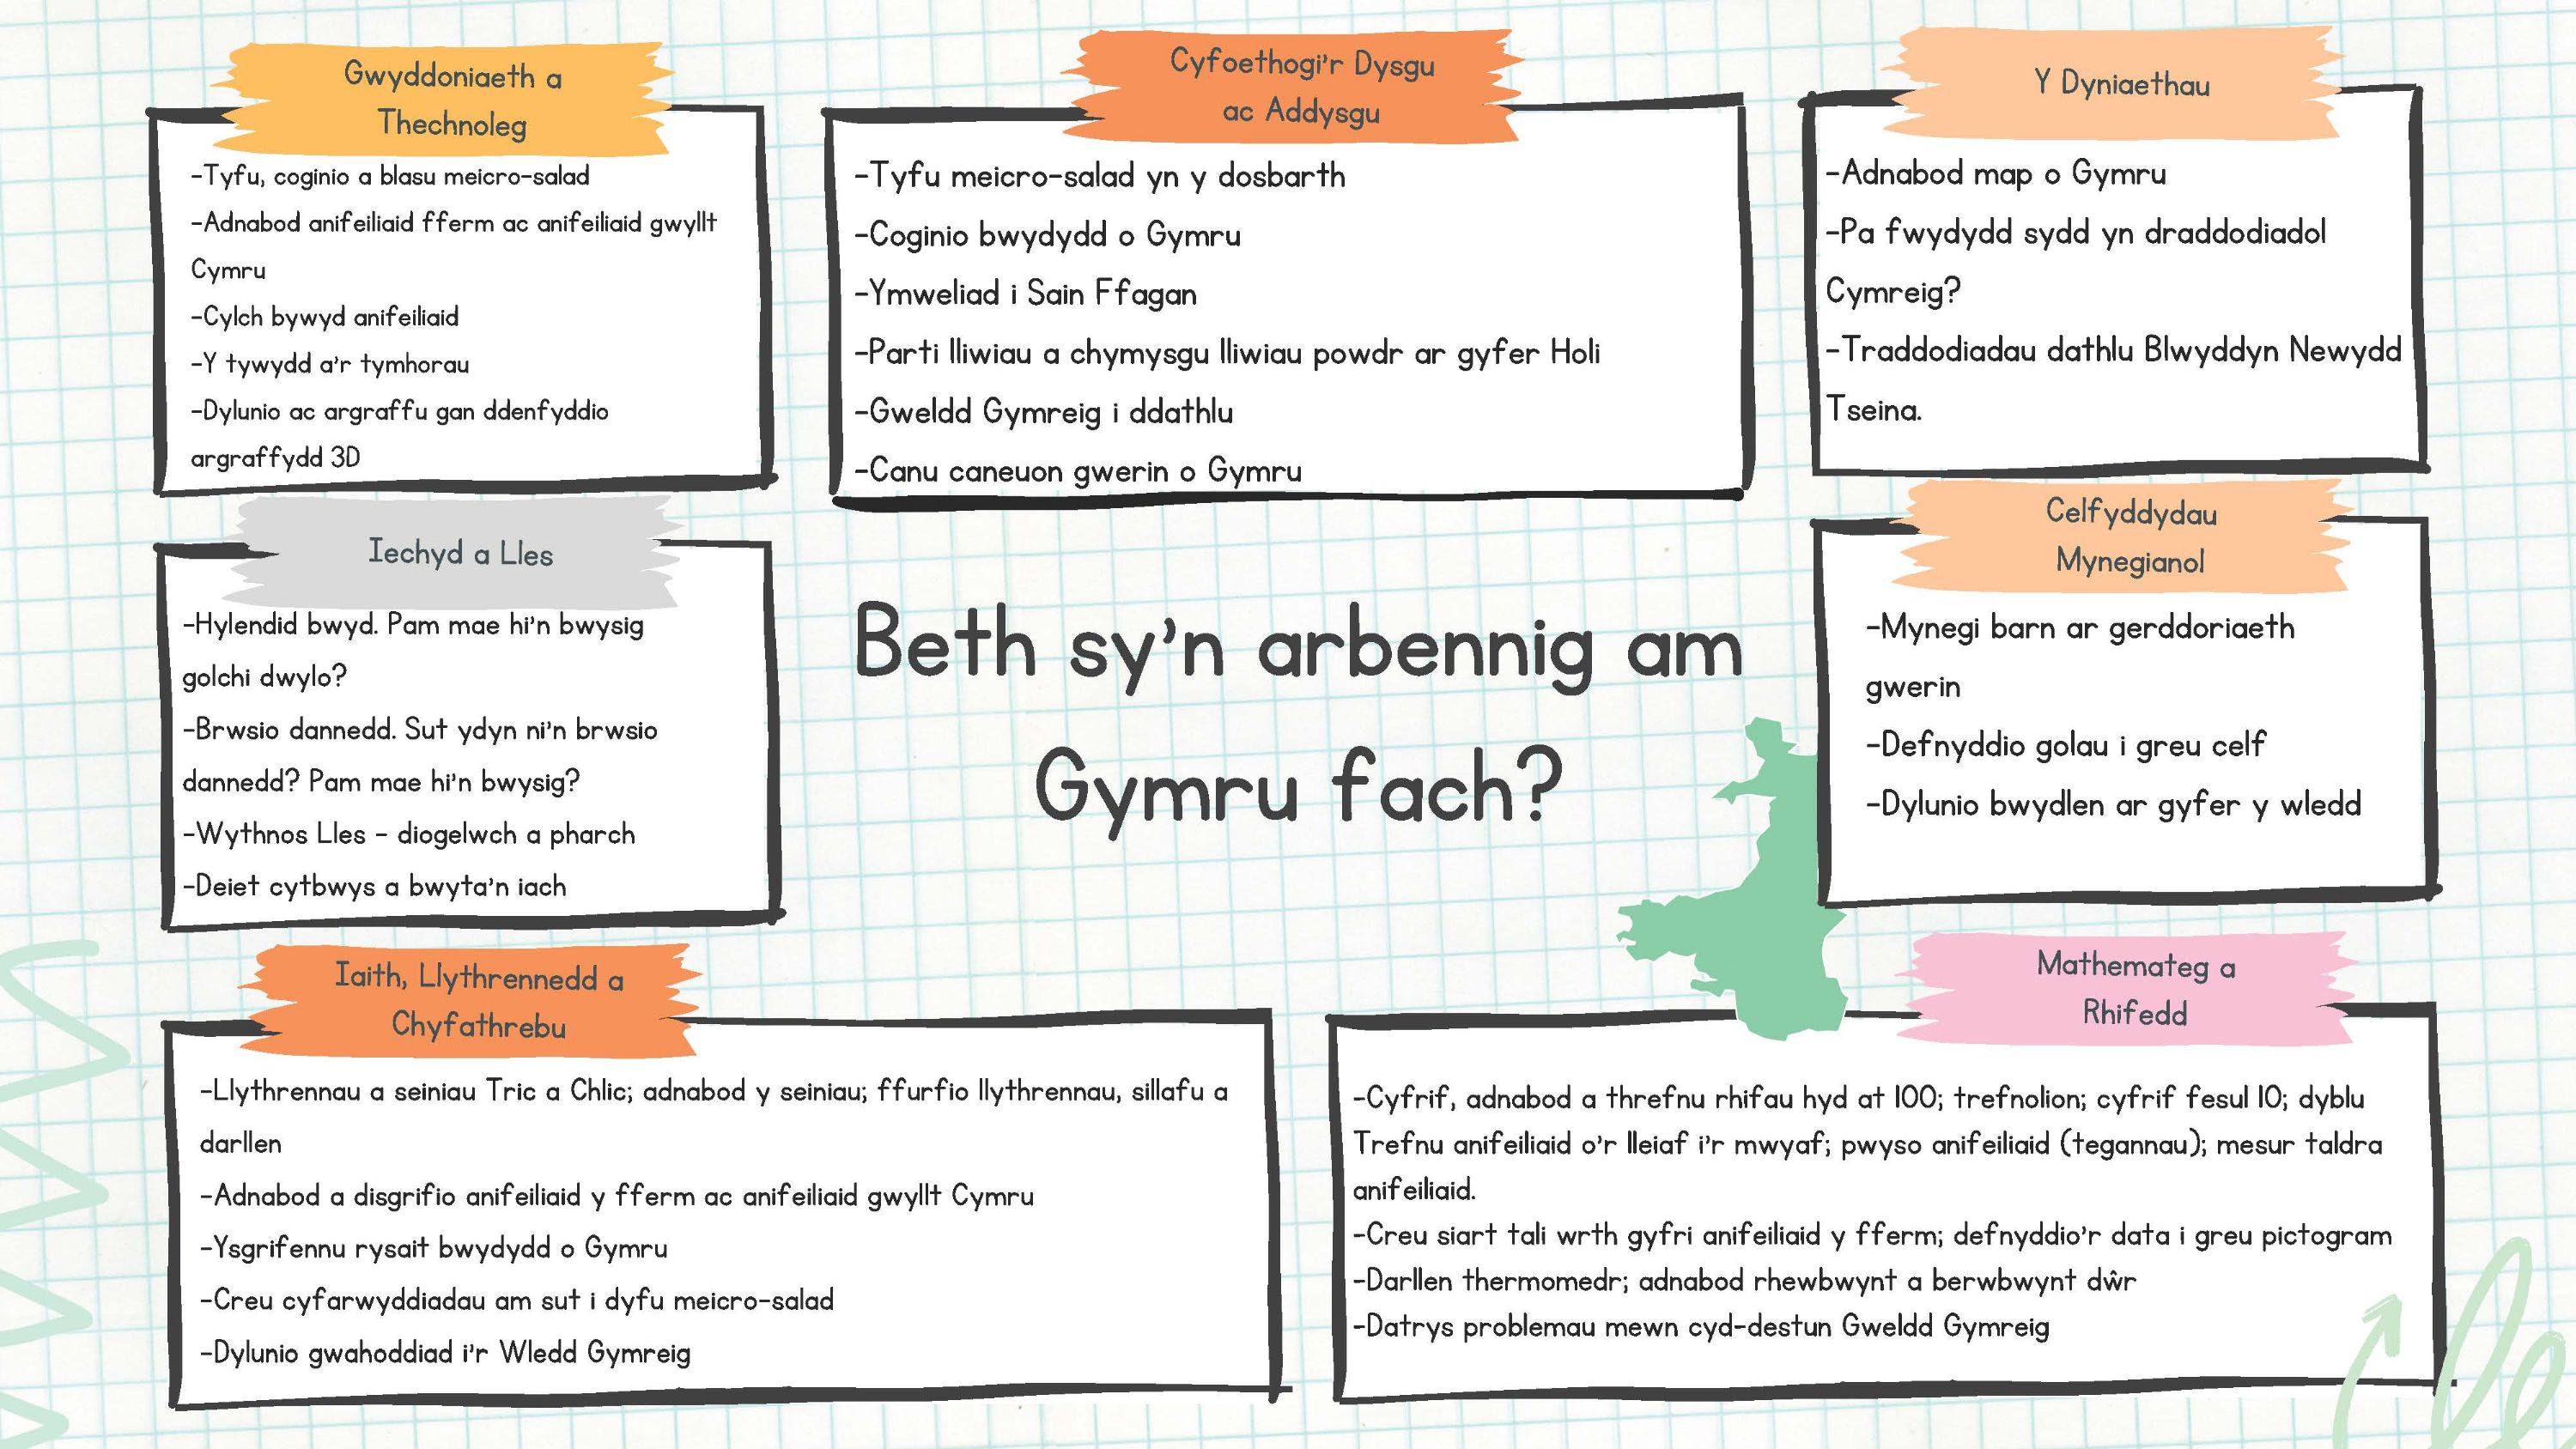 Gwyddoniaeth a
Thechnoleg
-Tyfu, coginio a blasu meicro-salad
-Adnabod anifeiliaid fferm ac anifeiliaid gwyllt
Cymru
-Cylch bywyd anifeiliaid
-Y tywydd a'r tymhorau
-Dylunio ac argraffu gan ddenfyddio
argraffydd 3D
Cyfoethogi'r Dysgu
ac Addysgu
-Tyfu meicro-salad yn y dosbarth
-Coginio bwydydd o Gymru
-Ymweliad i Sain Ffagan
-Parti lliwiau a chymysgu lliwiau powdr ar gyfer Holi
-Gweldd Gymreig i ddathlu
-Canu caneuon gwerin o Gymru
Y Dyniaethau
-Adnabod map o Gymru
-Pa fwydydd sydd yn draddodiadol
Cymreig?
-Traddodiadau dathlu Blwyddyn Newydd
Tseina.
Iechyd a Lles
-Hylendid bwyd. Pam mae hi'n bwysig
golchi dwylo?
-Brwsio dannedd. Sut ydyn ni'n brwsio
dannedd? Pam mae hi'n bwysig?
-Wythnos Lles - diogelwch a pharch
-Deiet cytbwys a bwyta'n iach
Beth sy'n arbennig am
Gymru fach?
Celfyddydau
Mynegianol
-Mynegi barn ar gerddoriaeth
gwerin
-Defnyddio golau i greu celf
-Dylunio bwydlen ar gyfer y wledd
Iaith, Llythrennedd a
Chyfathrebu
-Llythrennau a seiniau Tric a Chlic; adnabod y seiniau; ffurfio llythrennau, sillafu a
darllen
-Adnabod a disgrifio anifeiliaid y fferm ac anifeiliaid gwyllt Cymru
-Ysgrifennu rysait bwydydd o Gymru
-Creu cyfarwyddiadau am sut i dyfu meicro-salad
-Dylunio gwahoddiad i'r Wledd Gymreig
Mathemateg a
Rhifedd
-Cyfrif, adnabod a threfnu rhifau hyd at 100; trefnolion; cyfrif fesul 10; dyblu
Trefnu anifeiliaid o'r lleiaf i'r mwyaf; pwyso anifeiliaid (tegannau); mesur taldra
anifeiliaid.
-Creu siart tali wrth gyfri anifeiliaid y fferm; defnyddio'r data i greu pictogram
-Darllen thermomedr; adnabod rhewbwynt a berwbwynt dŵr
-Datrys problemau mewn cyd-destun Gweldd Gymreig